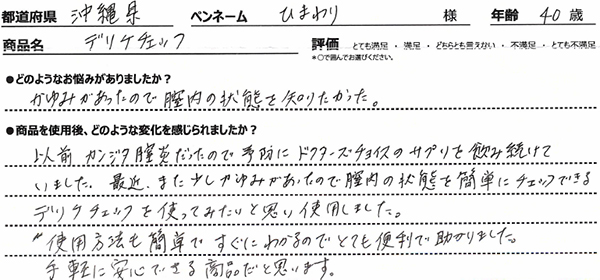 都道府県 沖縄県 ペンネーム ひまわり 様 年齢 40 歳
商品名 デリケチェック 評価 とても満足 ・ 満足 ・ どちらとも言えない ・ 不満足 ・ とても不満足
*○で囲んでお選びください。
●どのようなお悩みがありましたか?
かゆみがあったので膣内の状態を知りたかった。
●商品を使用後、どのような変化を感じられましたか?
以前 カンジタ膣炎だったので予防にドクターズチョイスのサプリを飲み続けて
いました。最近、また少しかゆみがあったので膣内の状態を簡単にチェックできる
デリケチェックを使ってみたいと思い使用しました。
使用方法も簡単ですぐにわかるのでとても便利で助かりました。
手軽に安心できる商品だと思います。